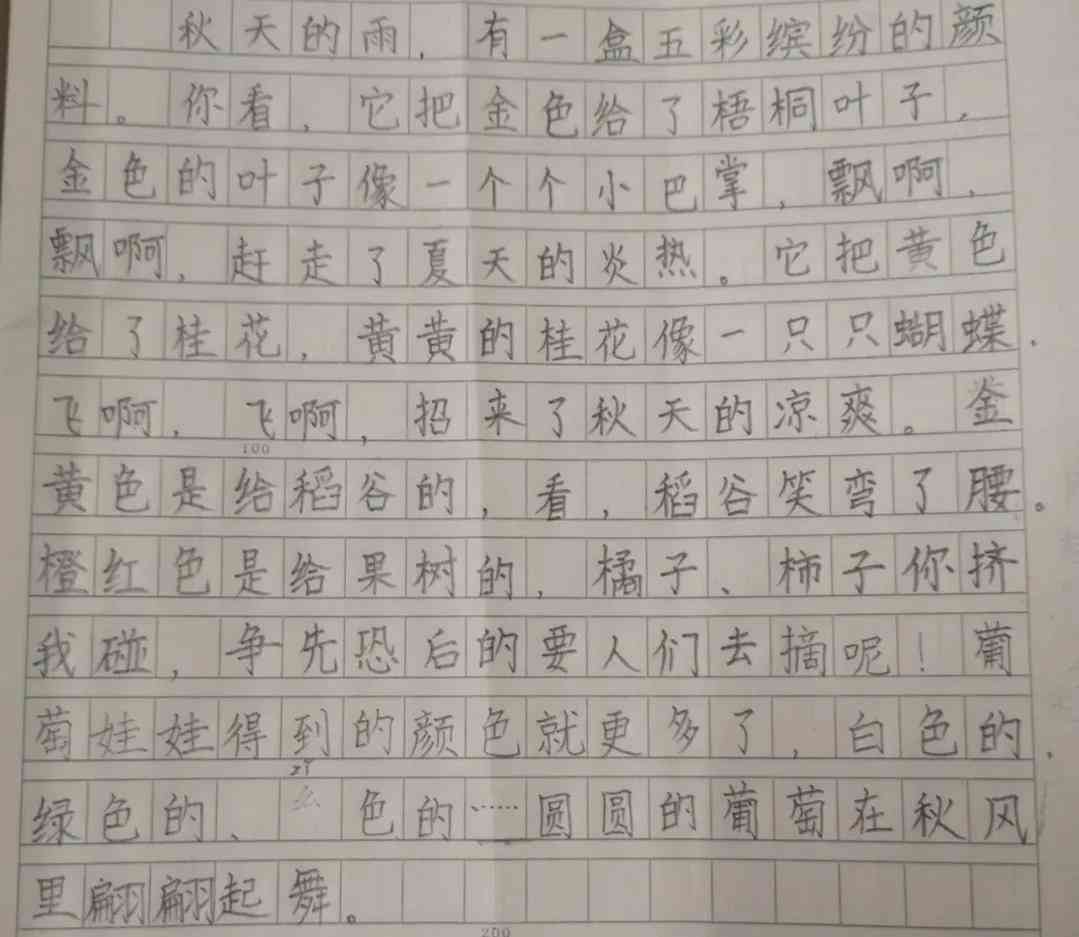 秋天的雨，有一盒五彩缤纷的颜
料。你看，它把金色给了梧桐叶子，
金色的叶子像一个个小巴掌，飘啊，
飘啊，赶走了夏天的炎热。它把黄色
给了桂花，黄黄的桂花像一只只蝴蝶，
飞啊，飞啊，招来了秋天的凉爽。金
100
黄色是给稻谷的，看，稻谷笑弯了腰。
橙红色是给果树的，橘子、柿子你挤
我碰，争先恐后的要人们去摘呢！葡
萄娃娃得到的颜色就更多了，白色的、
zǐ
绿色的、 色的……圆圆的葡萄在秋风
里翩翩起舞。
200